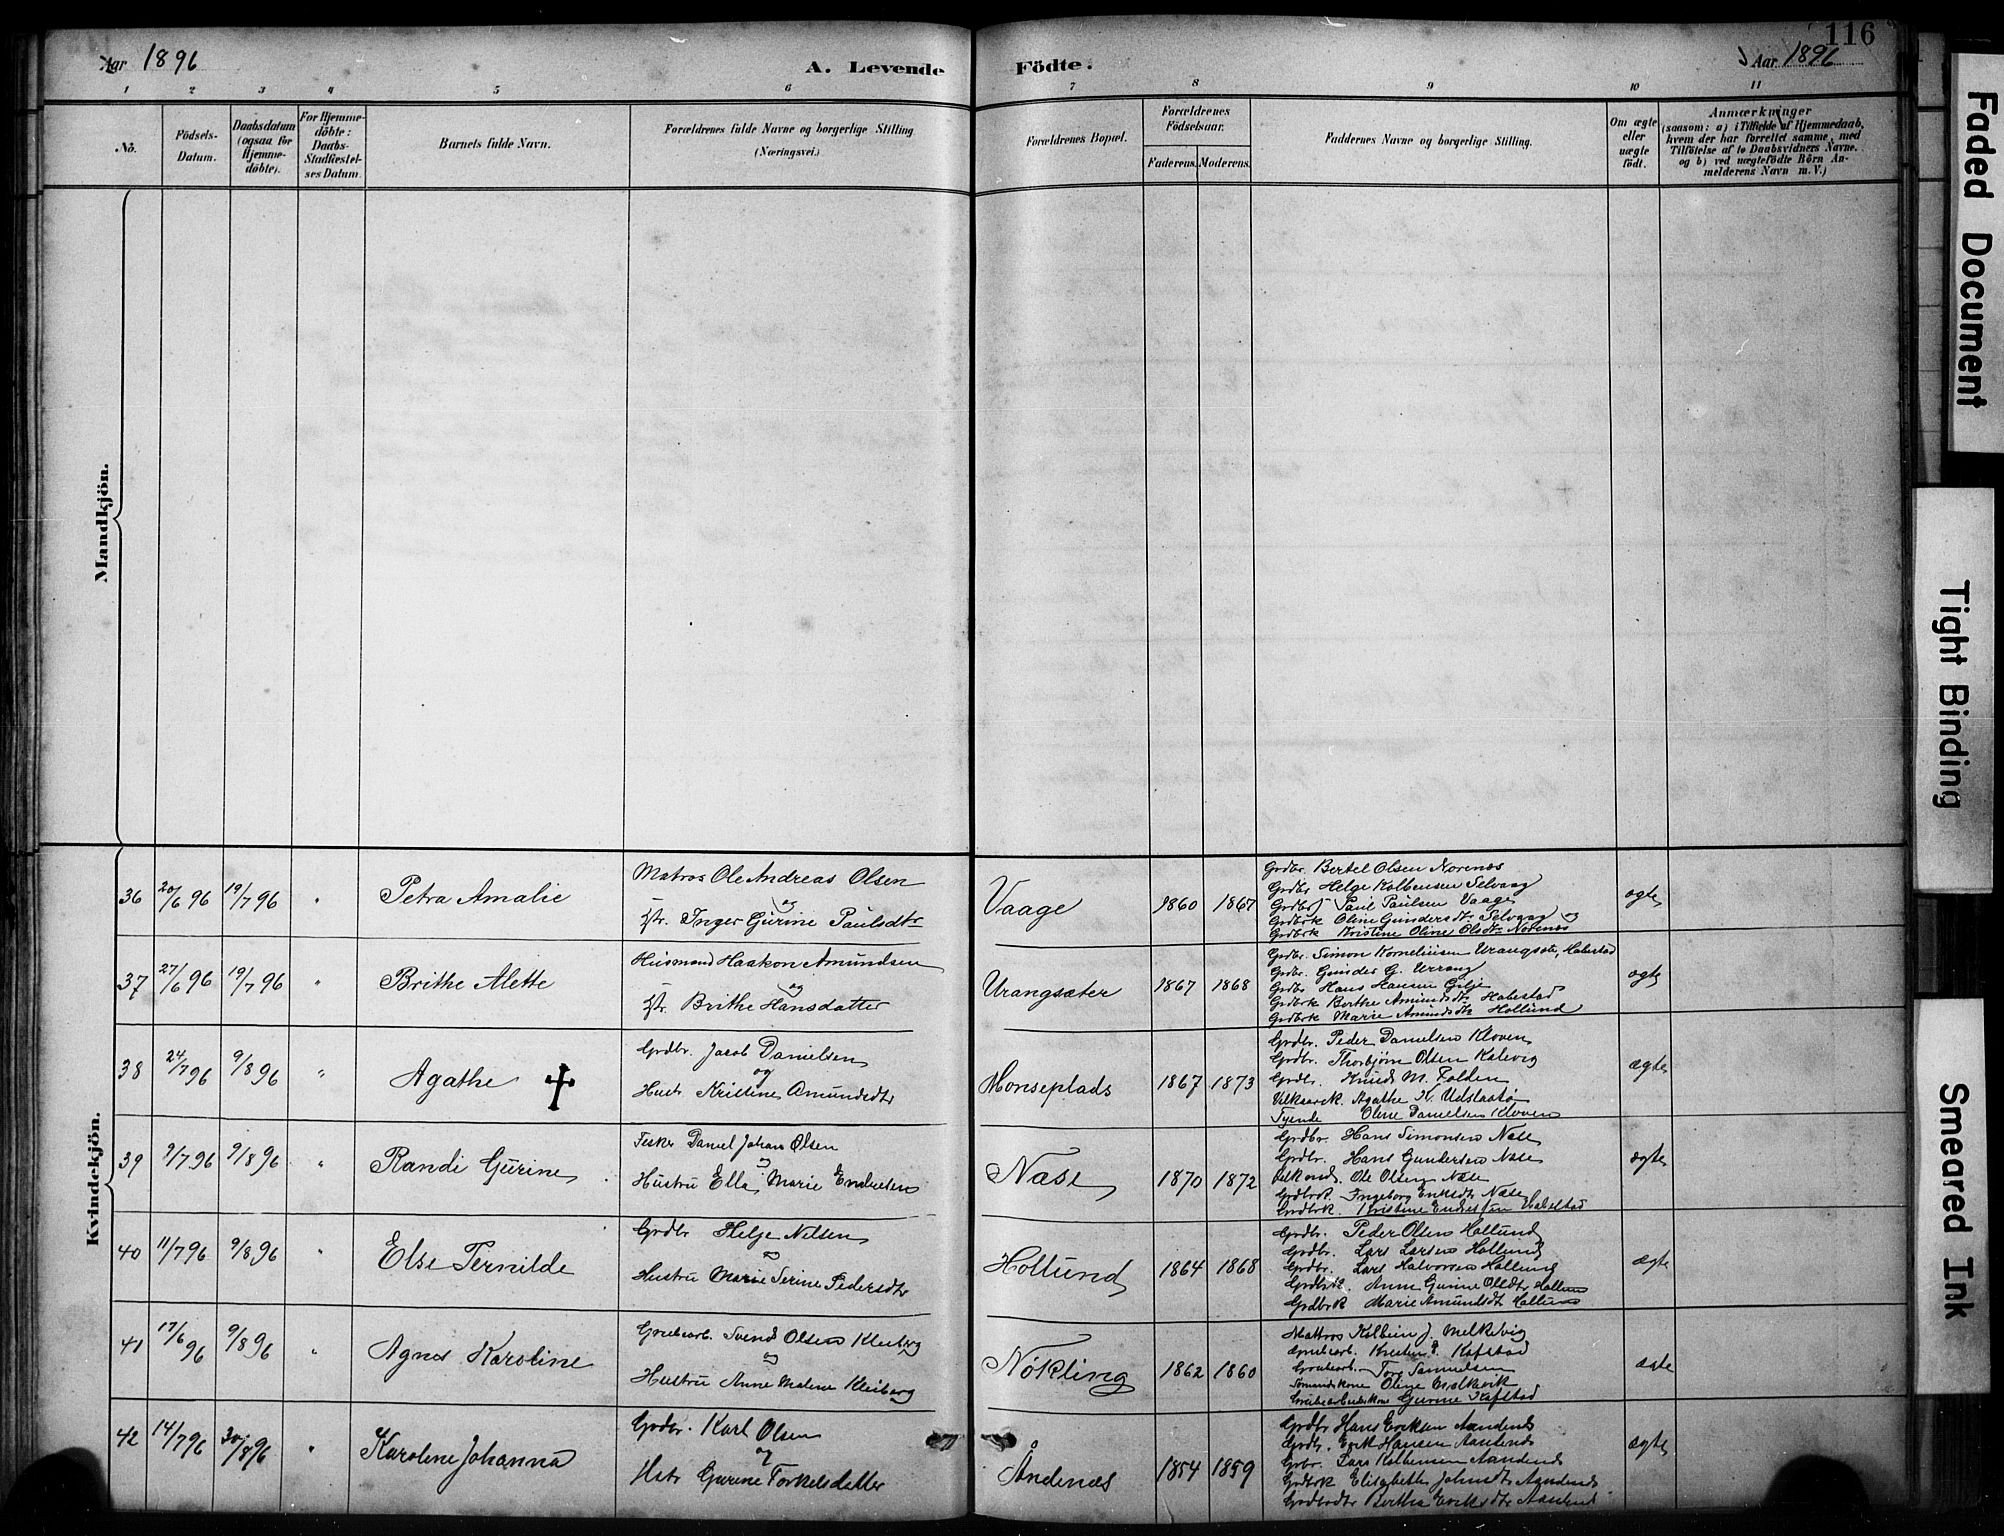 116
Aar 1896
A. Levende Födte.
Aar 1896
1 2 3 4 5 6 7 8 9 10 11
No.
Födsels-
Datum.
Daabsdatum
(ogsaa for
Hjemme-
döbte).
For Hjemme-
döbte:
Daabs-
Stadfæstel-
ses Datum.
Barnets fulde Navn.
Forældrenes fulde Navne og borgerlige Stilling
(Næringsvei.)
Forældrenes Bopæl.
Forældrenes
Födselsaar.
Faderens. Moderens.
Faddernes Navne og borgerlige Stilling.
Om ægte
eller
uægte
födt.
Anmærkninger
(saasom: a) i Tilfælde af Hjemmedaab,
hvem der har forrettet samme, med
Tilföielse af to Daabsvidners Navne.
og b) ved uægtefödte Börn An-
melderens Navn m. V.)
Mandkjön.
Kvindekjön.
36 20/6 96 19/7 96 " Petra Amalie
Matros Ole Andreas Olsen
og
Inger Gurine Paulsdtr
Vaage 1860 1867
Grdbr. Bertel Olsen Norenæs
Grdbr Helge Kolbensen Selvaag
Grdbr Paul Paulsen Vaage
Grdbrk Oline Gundersdtr Selvaag og
Grdbrk Kristine Oline Olsdtr Norenæs
ægte
37 27/6 96 19/7 96 " Brithe Alette
Husmand Haakon Amundsen
og
Brithe Hansdatter
Urangsæter 1867 1868
Grdbr. Simon Korneliusen Urangsæt, Habestad
Grdbr. Gunder G. Urrang
Grdbr Hans Hansen Gilje
Grdbrk Berthe Amundsdtr Habestad
Grdbrk Marie Amundsdtr Hollund
ægte
38 24/7 96 9/8 96 " Agathe
Grdbr. Jacob Danielsen
og
Hust. Kristine Amundsdtr
Monseplads 1867 1873
Grdbr. Peder Danielsen Kloven
Grdbr. Thorbjørn Olsen Kalevig
Grdbr. Knud M. Folden
Agathe K. Udslaatø
Tjende Oline Danielsen Kloven
ægte
39 9/7 96 9/8 96 " Randi Gurine
Fisker Daniel Johan Olsen
og
Hustru Ella Marie Endresen
Næse 1870 1872
Grdbr. Hans Simonsen Næse
Grdbr. Hans Gundersen Næse
Ole Olsen Næse
Ingeborg Eriksdtr Næse
Grdbrk. Kristine Endresen Habestad
ægte
40 11/7 96 9/8 96 " Else Pernilde
Grdbr Helje Nilsen
og
Hustru Marie Serine Pedersdtr
Hollund 1864 1868
Grdbr. Peder Olsen Hollund
Grdbr. Lars Larsen Hollund
Grdbr. Lars Halvorsen Hollund
Grdbrk. Anne Gurine Olsdtr Hollund
Grdbrk Marie Amundsdtr Hollund
ægte
41 17/6 96 9/8 96 " Agnes Karoline
Grubearb. Svend Olsen Kleiberg
og
Hustru Anne Malene Kleiberg
Nökling 1862 1860
Mattros Kolbein J. Melkevig
Grubearb. Knut Kafstad
Grubearb. Tore Samuelsen
Sömandskone Oline Melkevik
Grubearbeiderkone Gurine Kafstad
ægte
42 14/7 96 30/8 96 " Karolene Johanna
Grdbr. Karl Olsen
og
Hstr Gurine Torkelsdatter
Åndenæs 1854 1859
Grdbr Hans Eriksen Aandenes
Grdbr. Erik Hansen Aandenes
Grbr. Lars Kolbensen Aandenes
Grdbrk Elisabeth Johnsdtr Aandenes
Berthe Eriksdtr Aandenes
ægte
Faded Document
Tight Binding
Smeared Ink